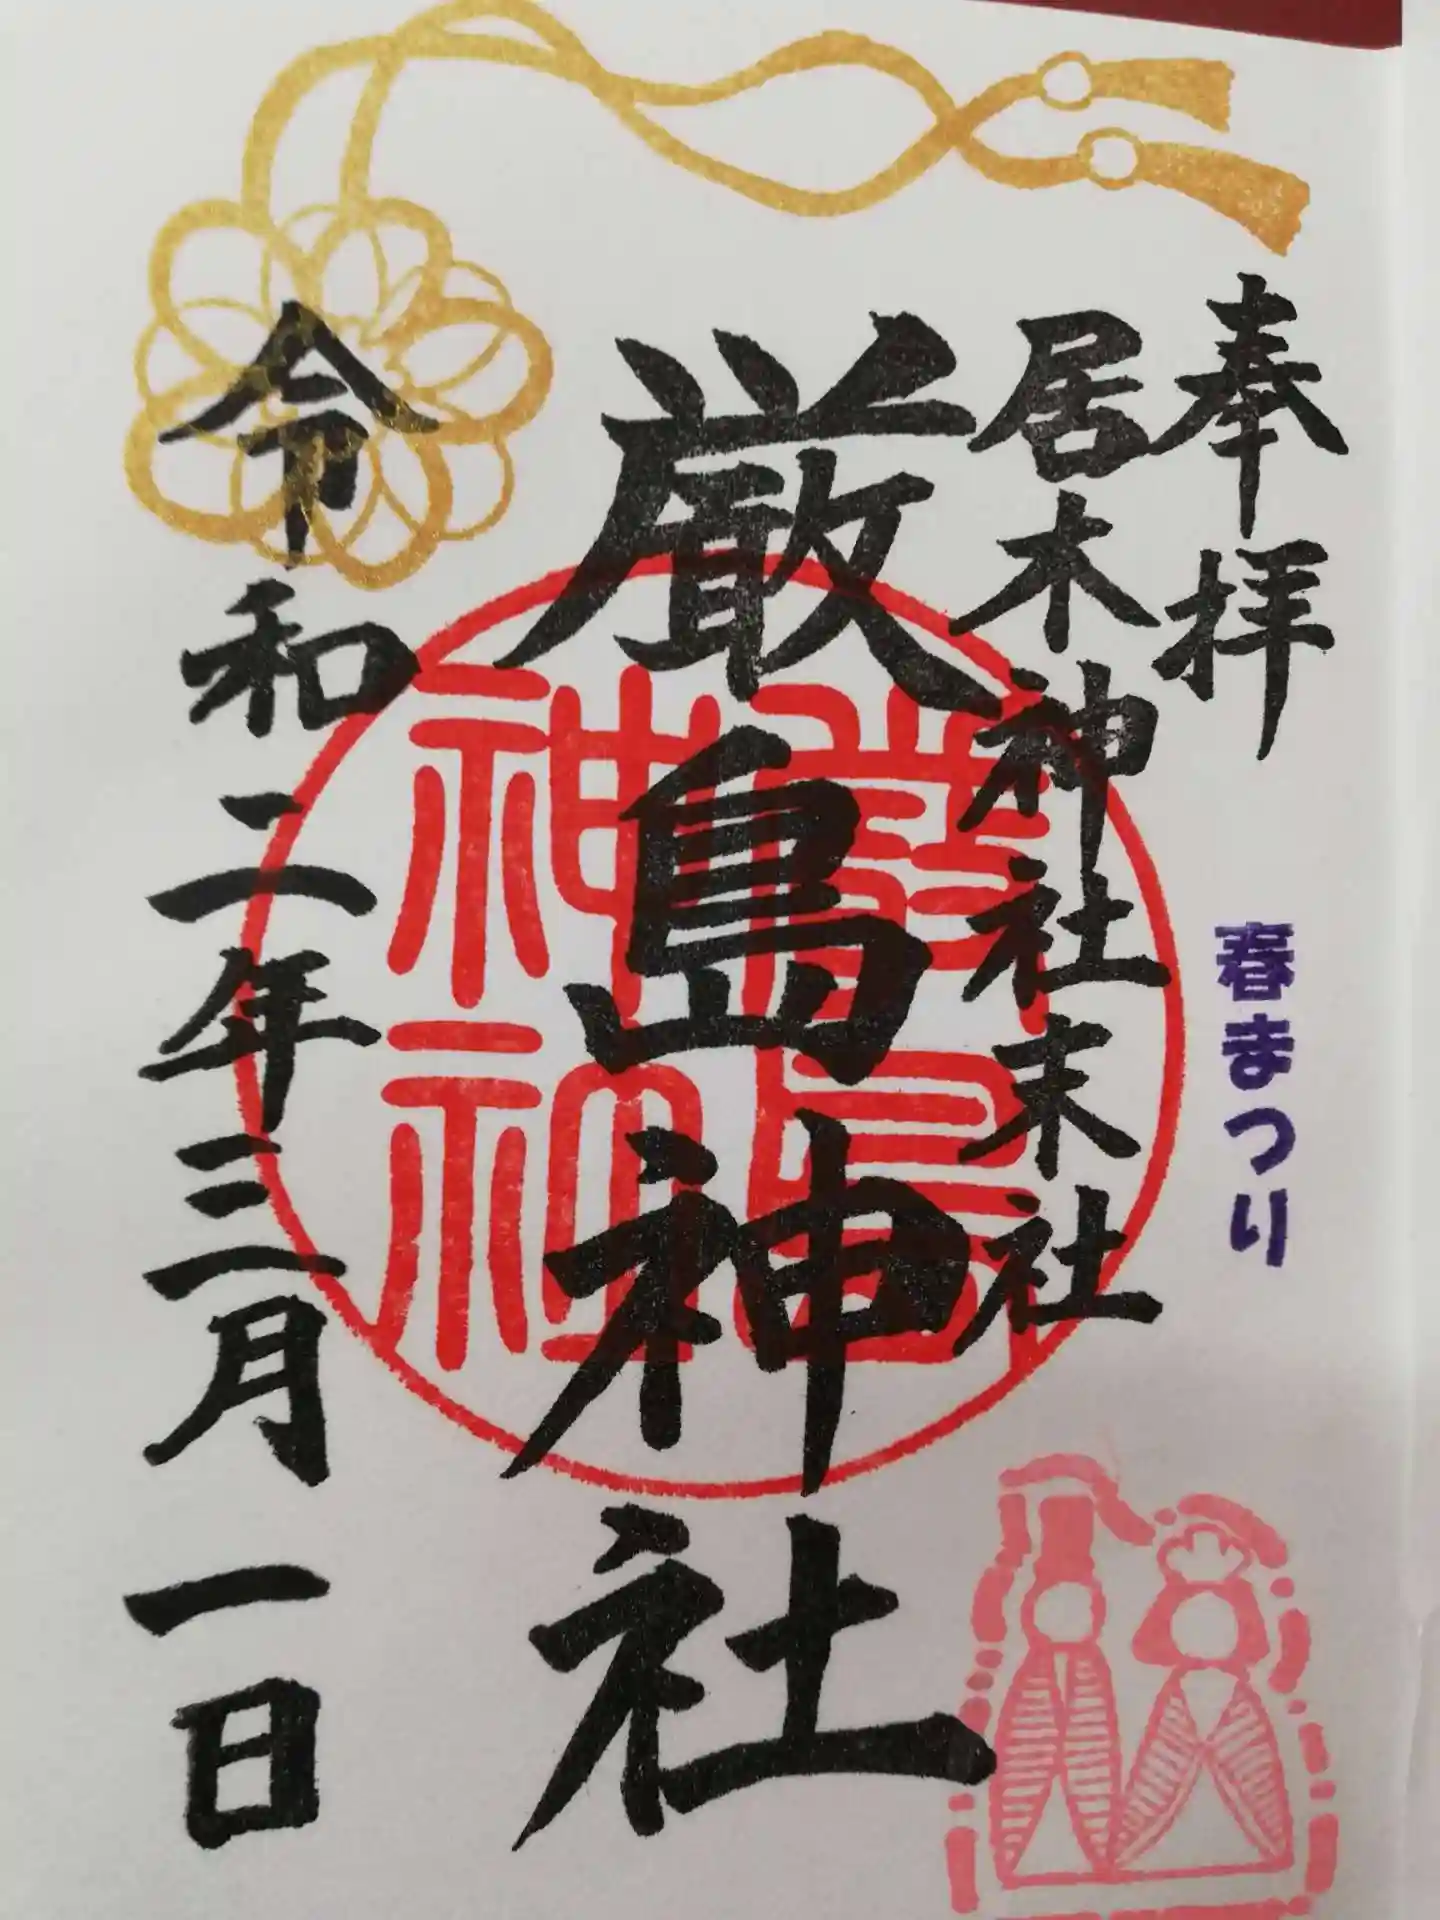 奉拝
春まつり
居木神社末社
厳島神社
嚴島神社
令和二年三月一日